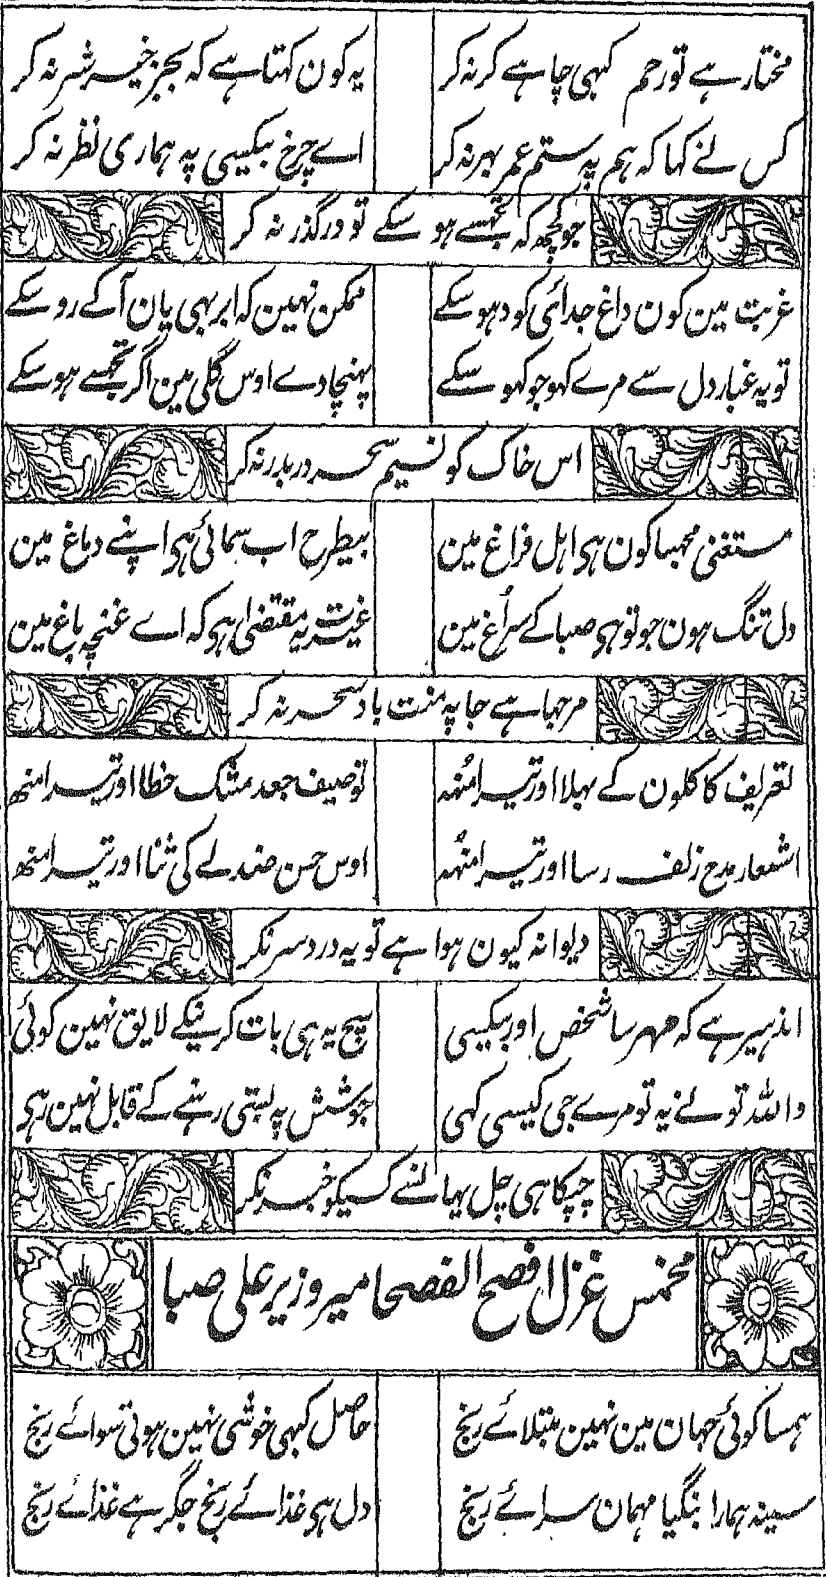 مختار ہے تو رحم کبہی چاہے کر نہ کر
یہ کون کہتا ہے کہ بجز خیر شر نہ کر
کس نے کہا کہ ہم پہ ستم عمر بہر نہ کر
اے چرخ بیکسی پہ ہماری نظر نہ کر
جو کچھ کہ تجہسے ہو سکے تو درگذر نہ کر
غربت مین کون داغ جدائی کو دہو سکے
ممکن نہین کہ ابر بہی یان آکے رو سکے
تو یہ غبار دل سے مرے کہو جو کہو سکے
پہنچا دے اوس گلی مین اگر تجہسے ہو سکے
اس خاک کو نسیم سحر دربدر نہ کر
مستغنی مجہسا کون ہی اہل فراغ مین
بیطرح اب سمائی ہی اپنے دماغ مین
دل تنگ ہون جو تو ہی صبا کے سراغ مین
غیرت یہ مقتضی ہی کہ اے غنچہ باغ مین
مرجہا ہے جا پہ منت باد سحر نہ کر
تعریف کاکلون کے بہلا اور تیرا مُنہہ
توصیف جعد مشک خطا اور تیرا منھ
اشعار مدح زلف رسا اور تیرا مُنہہ
اوس حسن صندلے کی ثنا اور تیرا منھ
دیوانہ کیون ہوا ہے تو یہ درد سر نکر
اندہیر ہے کہ مہر سا شخص اور بیکسی
سچ یہ ہی بات کرنیکے لایق نہین کوئی
واللہ تو نے یہ تو مرے جی کیسی کہی
جوشش پہ بستی رہنے کے قابل نہین رہی
چپکا ہی چل یہانسے کسیکو خبر نکر
مخمس غزل افصح الفصحا میر وزیر علی صبا
ہمسا کوئی جہان مین نہین مبتلائے رنج
حاصل کبہی خوشی نہین ہوتی سوائے رنج
سینہ ہمارا بنگیا مہمان سرائے رنج
دل ہی غذائے رنج جگر ہے غذائے رنج